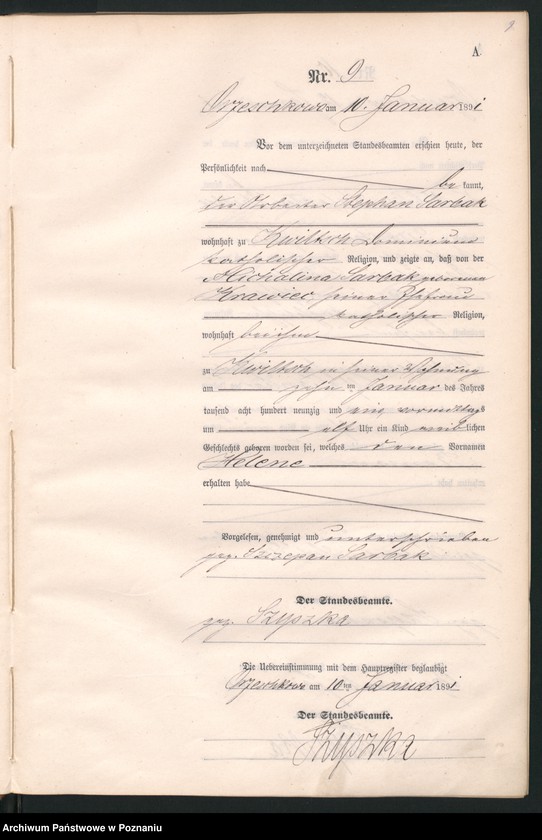 A
Nr. 9
Orzeschkowo am 10. Januar 1891
Vor dem unterzeichneten Standesbeamten erschien heute, der
Persönlichkeit nach
bekannt,
der Arbeiter Stephan Sarbak
wohnhaft zu Kwiltsch Dominium
katholischer Religion, und zeigte an, daß von der
Michalina Sarbak geborenen
Krawiec, seiner Ehefrau
katholischer Religion,
wohnhaft bei ihm
zu Kwiltsch in seiner Wohnung
am zehnten Januar des Jahres
tausend acht hundert neunzig und ein, vormittags
um elf Uhr ein Kind weiblichen
Geschlechts geboren worden sei, welches den Vornamen
Helene
erhalten habe
Vorgelesen, genehmigt und unterschrieben
gez. Szczepan Sarbak
Der Standesbeamte.
gez. Szyszka
Die Uebereinstimmung mit dem Hauptregister beglaubigt
Orzeschkowo am 10 ten Januar 1891
Der Standesbeamte.
Szyszka
Archiwum Państwowe w Poznaniu